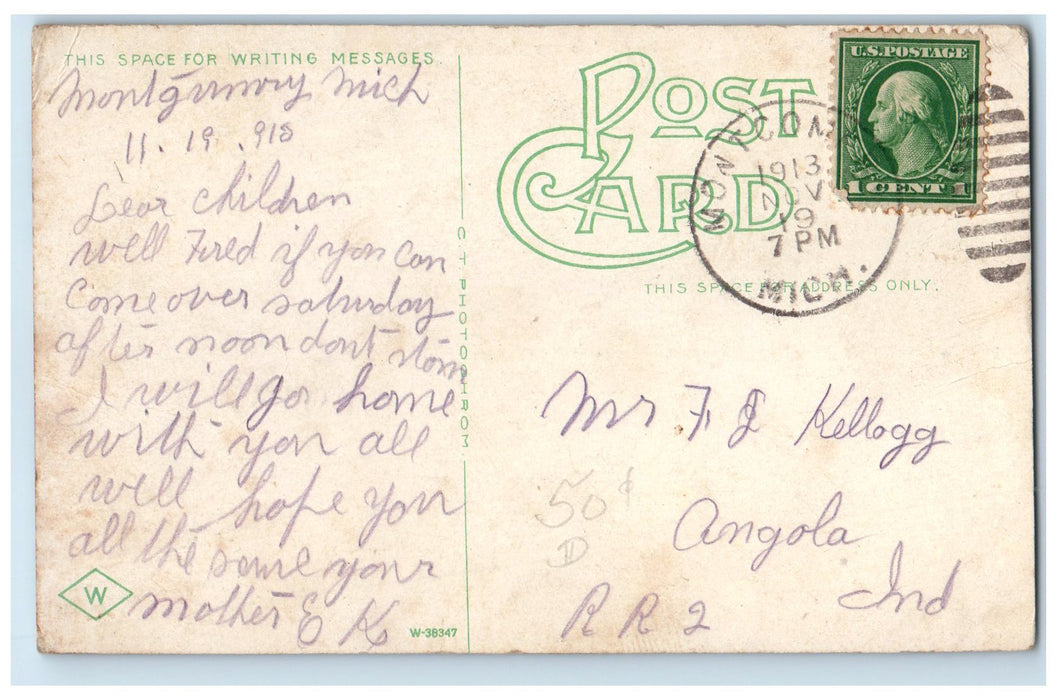 THIS SPACE FOR WRITING MESSAGES.
Montgumry Mich
11. 19. 918
Dear Children
well Fred if you Can
Come over saturday
after noon dont storm
I will go home
with you all
well hope you
all the same your
mother E K
W
W-38347
C T PHOTOCHROM
POST CARD
U.S. POSTAGE
1 CENT 1
MONTGOM
1913
NOV
19
7 PM
MICH.
THIS SPACE FOR ADDRESS ONLY.
Mr F J Kellogg
Angola
Ind
R R 2
50¢
D